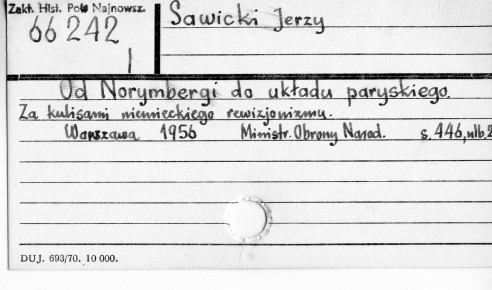 Zakł. Hist. Pols Najnowsz.
66 242
I
Sawicki Jerzy
Od Norymbergi do układu paryskiego.
Za kulisami niemieckiego rewizjonizmu.
Warszawa 1956 Ministr. Obrony Narod. s. 446, nlb. 2
DUJ. 693/70. 10 000.